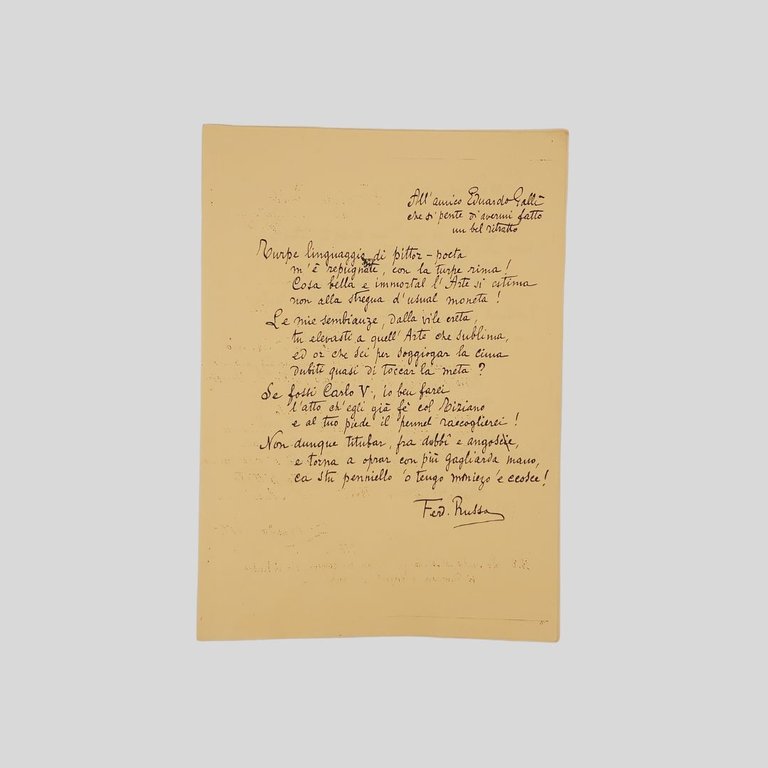 All'amico Eduardo Galli
che si pente d'avermi fatto
un bel ritratto
Turpe linguaggio di pittor-poeta
m'è repugnate, con la turpe rima!
Cosa bella e immortal l'Arte si estima
non alla stregua d'usual moneta!
Le mie sembianze, dalla vile creta,
tu elevasti a quell'Arte che sublima,
ed or che sei per soggiogar la cima
dubiti quasi di toccar la meta?
Se fossi Carlo V., io ben farei
l'atto ch'egli già fè col Tiziano
e al tuo piede il pennel raccoglierei!
Non dunque titubar, fra dubbî e angoscie,
e torna a oprar con più gagliarda mano,
ca stu penniello 'o tengo miezo 'e ccosce!
Ferd. Russo